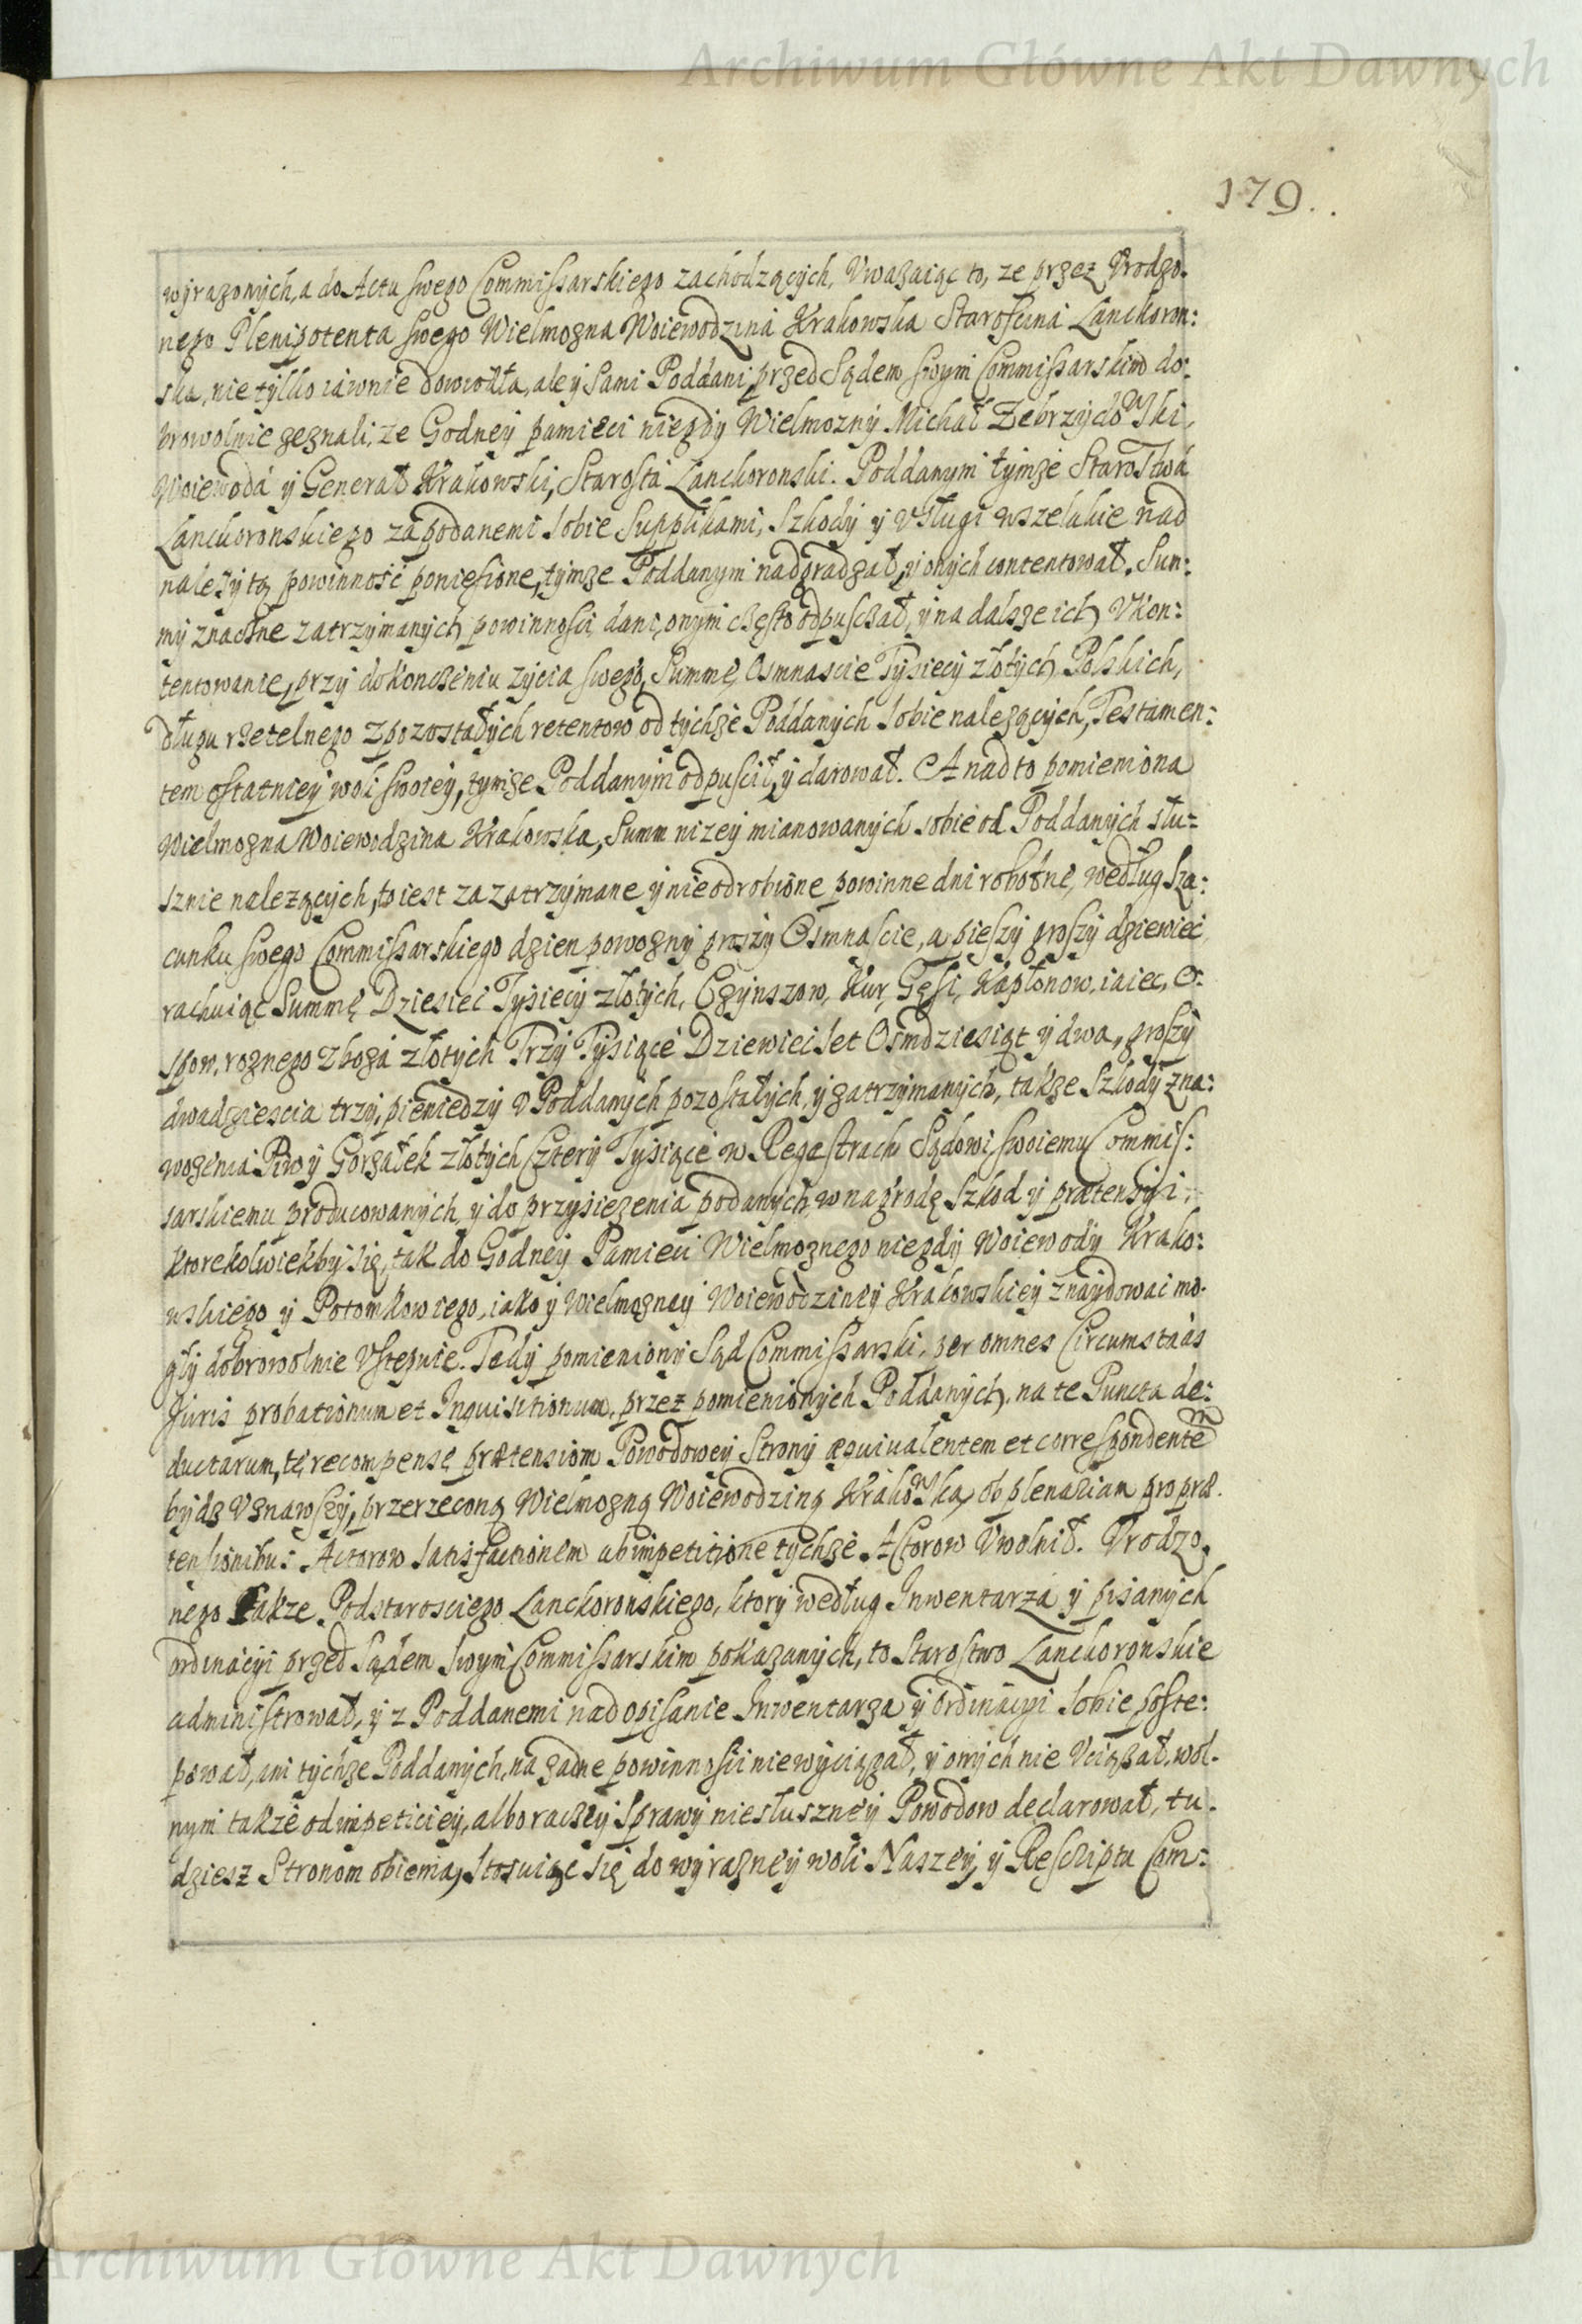 Archiwum Główne Akt Dawnych
179.
wyrazonych, a do Actu swego Commissarskiego zachodzących, Uwazaiąc to, ze przez Urodzo-
nego Plenipotenta swego Wielmozna Woiewodzina Krakowska Starościna Lanckoron:
ska, nie tylko iawnie dowiodła, ale y sami Poddani przed Sądem swym Commissarskim do:
browolnie zeznali, ze Godney pamięci niegdy Wielmozny Michał Zebrzydowski,
Woiewoda y Generał Krakowski, Starosta Lanckoronski. Poddanym tymze Starostwa
Lanckoronskiego za podanemi sobie Supplikami, Szkody y Usługi wszelakie nad
nalezytą powinność poniesione, tymze Poddanym nadgradzał, y onych contentował. Sum:
my znaczne zatrzymanych powinności dani, onym często odpusczał, y na dalsze ich Ukon:
tentowanie, przy dokonczeniu zycia swego, Summę Osmnascie Tysiecy złotych Polskich,
długu rzetelnego z pozostałych retentow od tychze Poddanych sobie nalezących, Testamen:
tem ostatniey woli swoiey, tymze Poddanym odpuscił, y darował. A nad to pomieniona
Wielmozna Woiewodzina Krakowska, Summ nizey mianowanych sobie od Poddanych słu:
sznie nalezących, to iest za zatrzymane y nie odrobione powinne dni robotne, według Sza:
cunku swego Commissarskiego dzien powozny groszy Osmnascie, a pieszy groszy dziewięć,
rachuiąc Summę Dziesiec Tysiecy złotych, Czynszow, Kur, Gęsi, Kapłonow, iaiec, O:
spow, roznego zboza złotych Trzy Tysiące Dziewiecset Osmdziesiąt y dwa, groszy
dwadziescia trzy, pieniedzy u Poddanych pozostałych, y zatrzymanych, takze Szkody zna:
wozenia Piw y Gorzałek złotych Cztery Tysiące w Regestrach Sądowi swoiemu Commis:
sarskiemu producowanych, y do przysiezenia podanych, w nagrodę Szkod y prætensyi,
ktorekolwiek by się, tak do Godney Pamieci Wielmoznego niegdy Woiewody Krako:
wskiego y Potomkow iego, iako y Wielmozney Woiewodziney Krakowskiey znaydowac mo-
gły dobrowolnie Ustępuie. Tedy pomieniony Sąd Commissarski, per omnes Circumstãas
Juris probationum et Inquisitionum, przez pomienionych Poddanych, na te Puncta de:
ductarum, tę recompensę prætensiom Powodowey Strony æquivalentem et correspondentem
bydz Uznawszy, przerzeconą Wielmozną Woiewodziną Krakowską, ob plenariam pro præ-
tensionibus Actorow satisfactionem ab impetitione tychze Actorow Uwolnił. Urodzo-
nego takze Podstarosciego Lanckoronskiego, ktory według Inwentarza y pisanych
ordinacyi przed Sądem swym Commissarskim pokazanych, to Starostwo Lanckoronskie
administrował, y z Poddanemi nad opisanie Inwentarza y ordinacyi sobie poste:
pował, ani tychze Poddanych, na zadne powinności nie wyciągał, y onych nie Uciązał, wol-
nym takze od impeticiey, albo raczey Sprawy niesłuszney Powodow declarował, tu-
dziesz Stronom obiema, Stosuiąc się do wyrazney woli Naszey, y Rescriptu Com:
Archiwum Główne Akt Dawnych